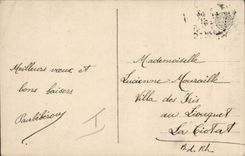 Meilleurs vœux et
bons baisers
Mademoiselle
Lucienne
Villa des Iris
au Liouquet
La Ciotat
B.d.Rh
T